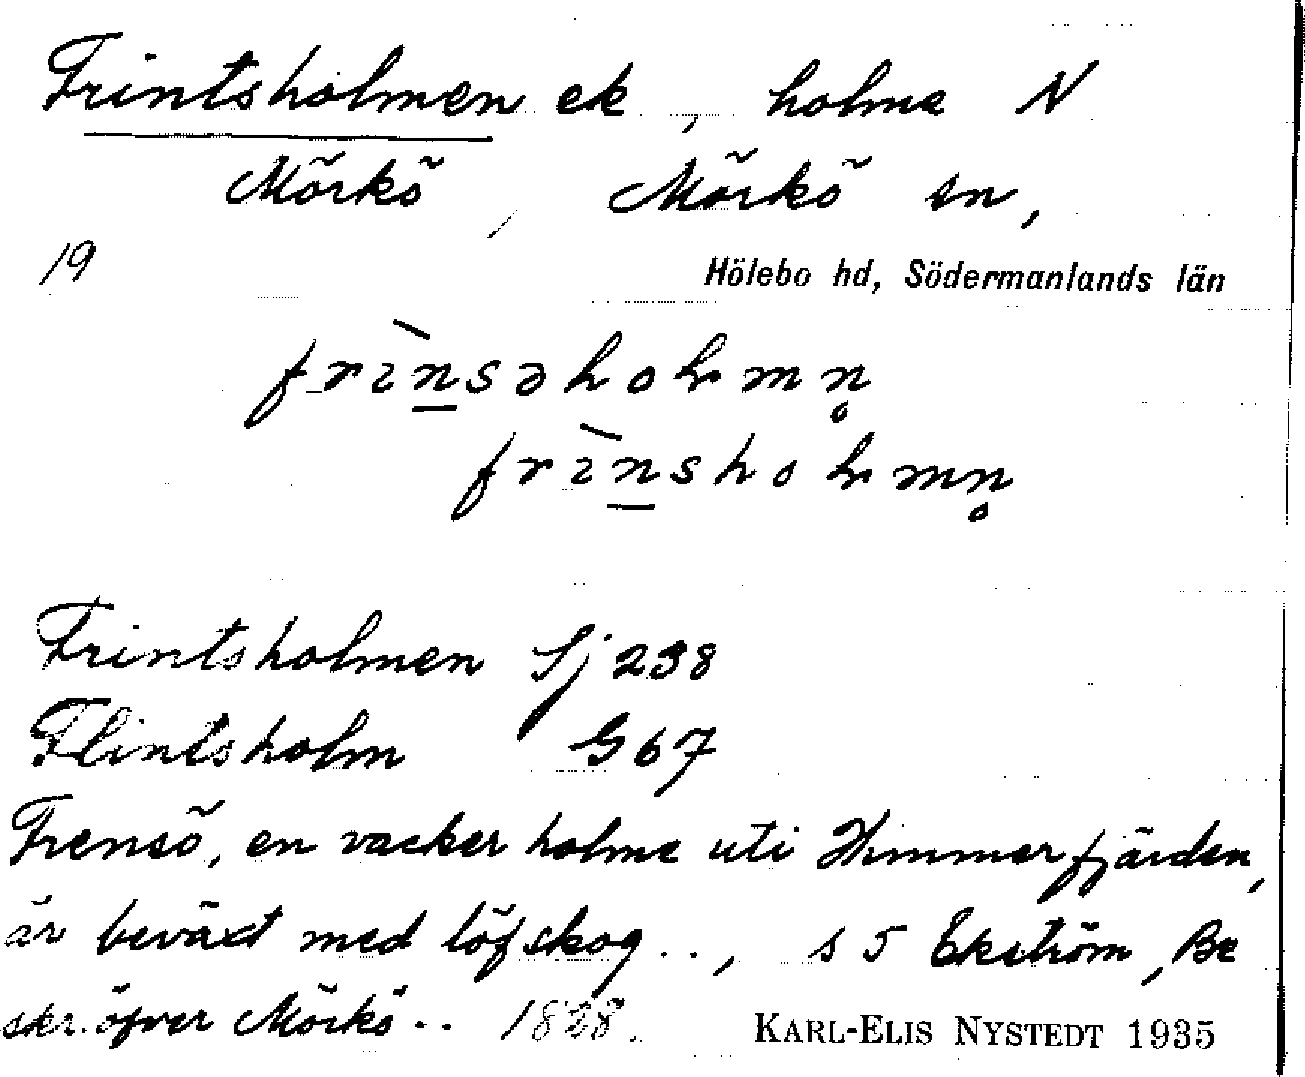 Frintsholmen ek, holme N
Mörkö, Mörkö sn,
19
Hölebo hd, Södermanlands län
frìnsəholmn̥
frìnsholmn̥
Frintsholmen Sj 238
Flintsholm G 67
Frensö, en vacker holme uti Himmerfjärden,
är beväxt med löfskog .., s 5 Ekström, Be
skr. öfver Mörkö .. 1828.
KARL-ELIS NYSTEDT 1935